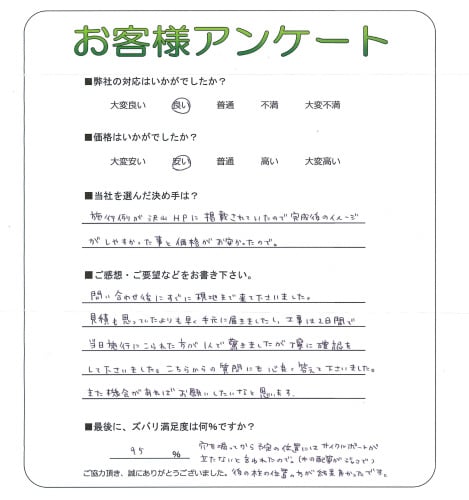 お客様アンケート
■弊社の対応はいかがでしたか？
大変良い 良い 普通 不満 大変不満
■価格はいかがでしたか？
大変安い 安い 普通 高い 大変高い
■当社を選んだ決め手は？
施行例が沢山HPに掲載されていたので完成後のイメージ
がしやすかった事と価格がお安かったので。
■ご感想・ご要望などをお書き下さい。
問い合わせ後にすぐに現地まで来て下さいました。
見積も思っていたよりも早く手元に届きましたし、工事は2日間で
当日施行にこられた方が1人で驚きましたが丁寧に確認を
して下さいました。こちらからの質問にも心良く答えて下さいました。
また機会があればお願いしたいなと思います。
■最後に、ズバリ満足度は何%ですか？
95 %
穴を掘ってから予定の位置にはサイクルポートが
立たないと言われたので。（の配管が
ご協力頂き、誠にありがとうございました。
後の柱の位置の方が結果良かったです。